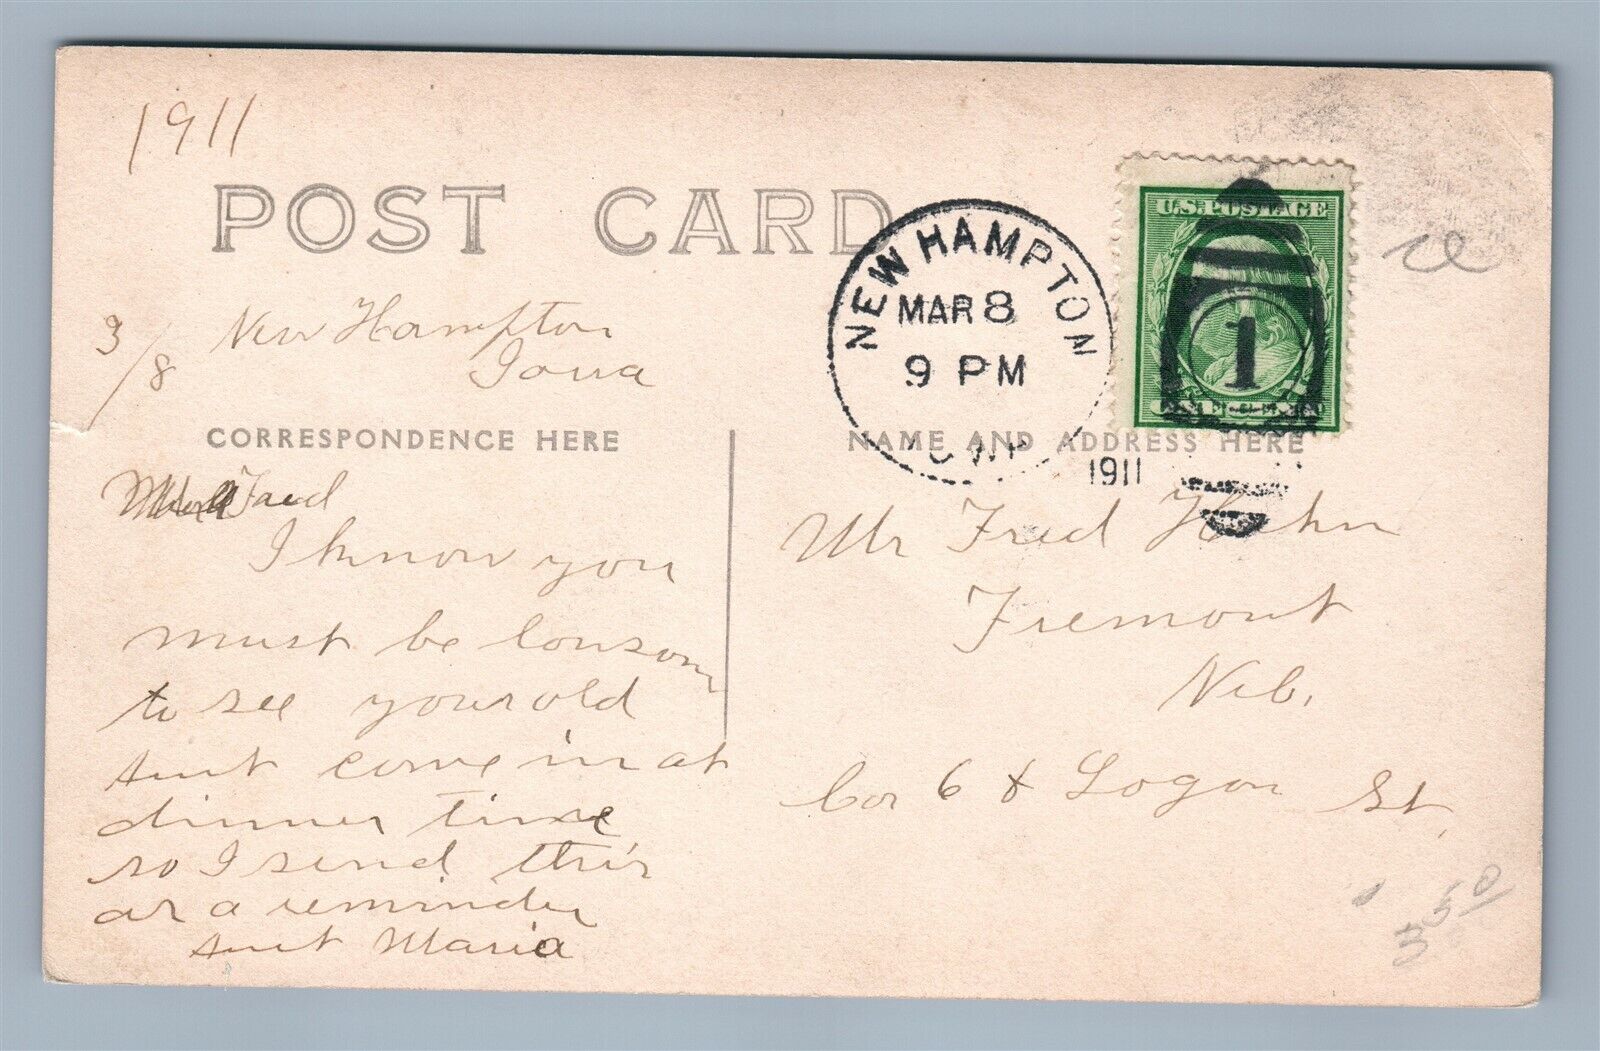 1911
POST CARD
NEW HAMPTON
MAR 8
9 PM
1911
U.S. POSTAGE
1
ONE CENT
3/8
New Hampton
Iowa
CORRESPONDENCE HERE
NAME AND ADDRESS HERE
Fred
I know you
must be lonsom
to see your old
Aunt come in at
dinner time
so I send this
as a reminder
Aunt Maria
Mr Fred Hahn
Fremont
Neb.
Cor 6 & Logan St.
350